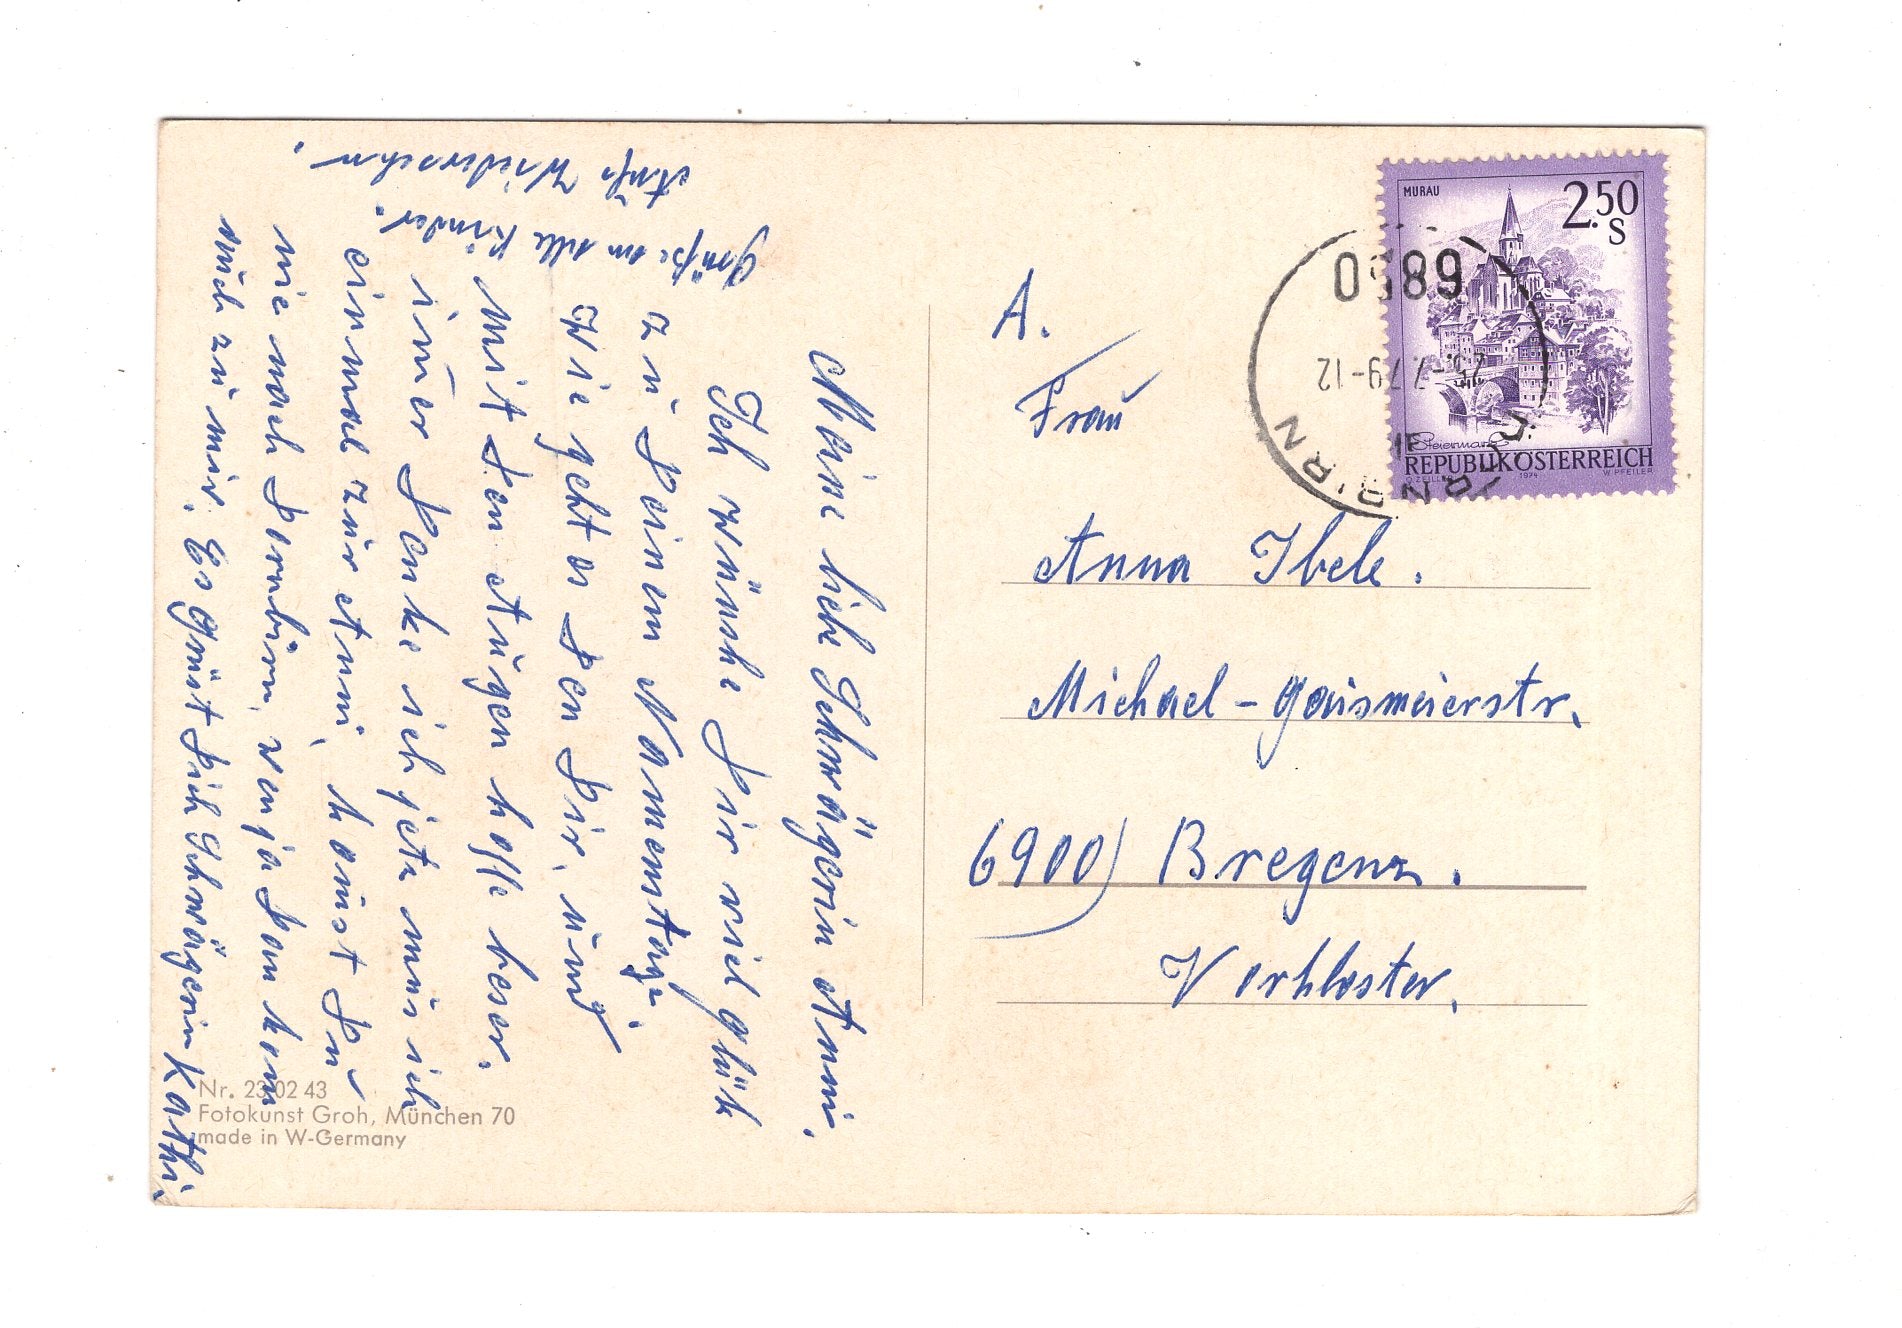 Meine liebe Schwägerin Anni.
Ich wünsche Dir viel glük
zu Deinem Namemtage.
Wie geht es den Dir, und
mit den Augen hoffe beser.
imer Denke ich jetz mus ich
einmal zur Anni, komst Du
nie nach Dornbirn, wen ja dan kom
auch zu mir. Es Grüst Dich Schwägerin Kathi.
Grüße an alle Kinder.
Aufs Wiedersehn.
Nr. 23 02 43
Fotokunst Groh, München 70
made in W-Germany
A.
Frau
Anna Ibele.
Michael-Gaismeierstr.
6900) Bregenz.
Vorkloster.
MURAU
2.50
S
Steiermark
REPUBLIK ÖSTERREICH
O. ZEILLER 1974 W. PFEILER
6850
-7.79-12
DORNBIRN